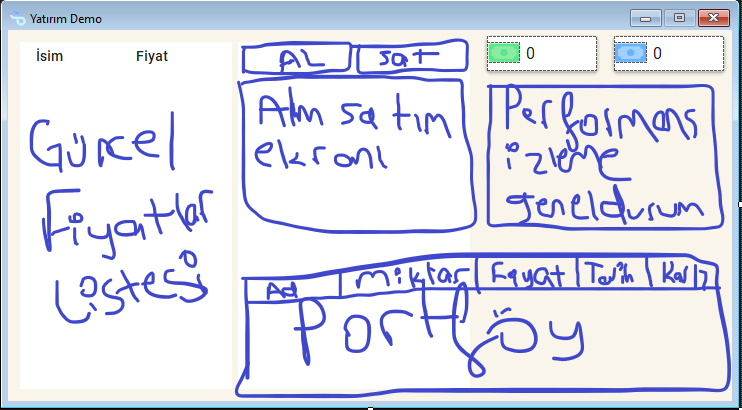 Yatırım Demo
İsim Fiyat
0 0
AL sat
Güncel
Fiyatlar
Listesi
Alım satım
ekranı
Performans
izleme
genel durum
Ad Miktar Fiyat Tarih
Portföy